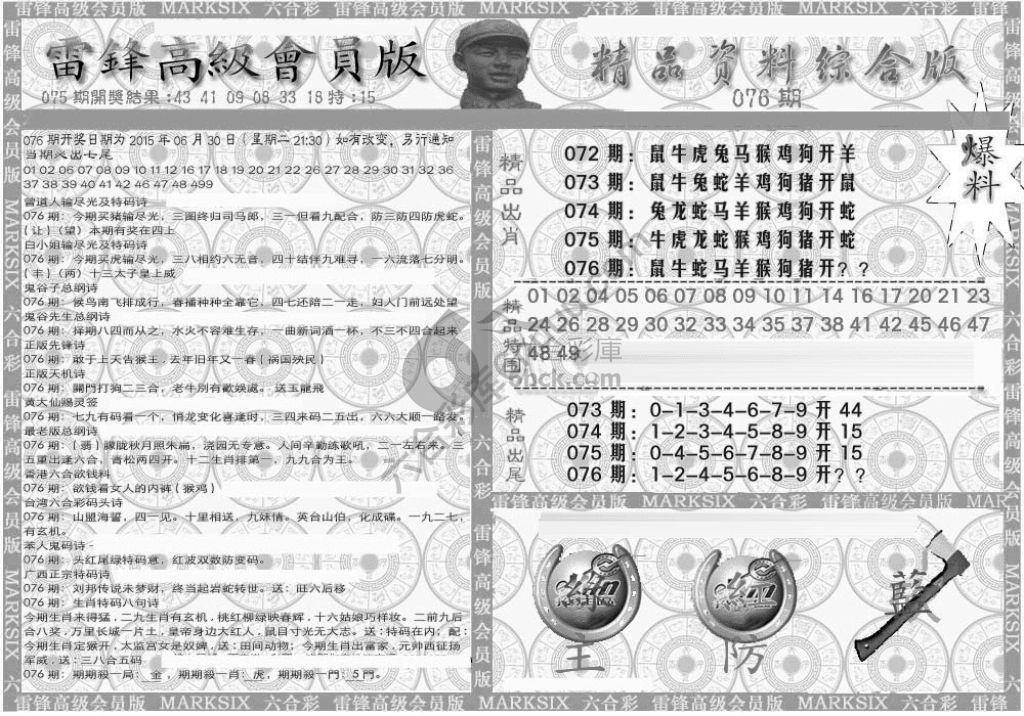 雷锋高级会员版 MARKSIX 六合彩 雷锋高级会员版 MARKSIX 六合彩 雷锋高级会员版 MARKSIX 六合彩 雷锋
雷鋒高級會員版
075 期開獎結果:43 41 09 06 33 18 特:15
精品资料综合版
076 期
爆料
076 期开奖日期为 2015 年 06 月 30 日(星期二 21:30)如有改变,另行通知
当期必出七尾
01 02 06 07 08 09 10 11 12 16 17 18 19 20 21 22 26 27 28 29 30 31 32 36
37 38 39 40 41 42 46 47 48 499
曾道人输尽光及特码诗
076 期: 今期买猪输尽光, 三图终归司马郎, 三一但看九配合, 防三防四防虎蛇。
{让}(望) 本期有奖在四上
白小姐输尽光特码诗
076 期: 今期买虎输尽光, 三八相约六无音, 四十结伴九难寻, 一六流落七分明。
{丰}(两) 十三太子皇上威
鬼谷子总纲诗
076 期: 候鸟南飞排成行, 春播种种全靠它, 四七还陪二一走, 妇人门前远处望
鬼谷先生总纲诗
076 期: 择期八四而从之, 水火不容难生存, 一曲新词酒一杯, 不三不四合起来
正版先锋诗
076 期: 敢于上天告猴王, 去年旧年又一春{祸国殃民}
正版天机诗
076 期: 關門打狗二三合, 老牛別有歡娛處。送玉龍飛
黄大仙赐灵签
076 期: 七九有码看一个, 悄龙变化喜逢时, 三四来码二五出, 六六大顺一路发。
最老版总纲诗
076 期: {翡} 朦胧秋月照朱扁, 浇园无专意。人间辛勤练歌吼, 二一左右来。三
五重出逢六合, 青松两四开。十二生肖排第一, 九九合为王。
香港六合欲钱料
076 期: 欲钱看女人的内裤{猴鸡}
台湾六合彩码头诗
076 期: 山盟海誓, 四一见。十里相送, 九妹情。英台山伯, 化成碟。一九二七,
有玄机。
笨人鬼码诗-
076 期: 头红尾绿特码意, 红波双数防变码。
广西正宗特码诗
076 期: 刘邦传说未梦财, 终当起岩蛇转世。送: 旺六后移
076 期: 生肖特码八句诗
今期生肖来得猛, 二九生肖有玄机, 桃红柳绿映春辉, 十六姑娘巧样妆。二前九后
合八奖, 万里长城一片土, 皇帝身边大红人, 鼠目寸光无大志。送: 特码在内; 配:
今期生肖定猴开, 太监宫女是奴婢, 送: 田间动物; 今期生肖出富家, 元帅西征扬
军威, 送: 三八合五码
076 期: 期期殺一局: 金, 期期殺一肖: 虎, 期期殺一門: 5 門。
精品出肖
072 期: 鼠牛虎兔马猴鸡狗开羊
073 期: 鼠牛兔蛇羊鸡狗猪开鼠
074 期: 兔龙蛇马羊猴鸡狗开蛇
075 期: 牛虎龙蛇猴鸡狗猪开蛇
076 期: 鼠牛蛇马羊猴狗猪开? ?
精品特围
01 02 04 05 06 07 08 09 10 11 14 16 17 20 21 23
24 26 28 29 30 32 33 34 35 37 38 41 42 45 46 47
48 49
精品出尾
073 期: 0-1-3-4-6-7-9 开 44
074 期: 1-2-3-4-5-8-9 开 15
075 期: 0-4-5-6-7-8-9 开 15
076 期: 1-2-4-5-6-8-9 开? ?
雷锋高级会员版 MARKSIX 六合彩 雷锋高级会员版 MARKSIX
主
防
藍
雷锋高级会员版 MARKSIX 六合彩 雷锋高级会员版 MARKSIX 六合彩 雷锋高级会员版 MARKSIX 六合彩 雷锋